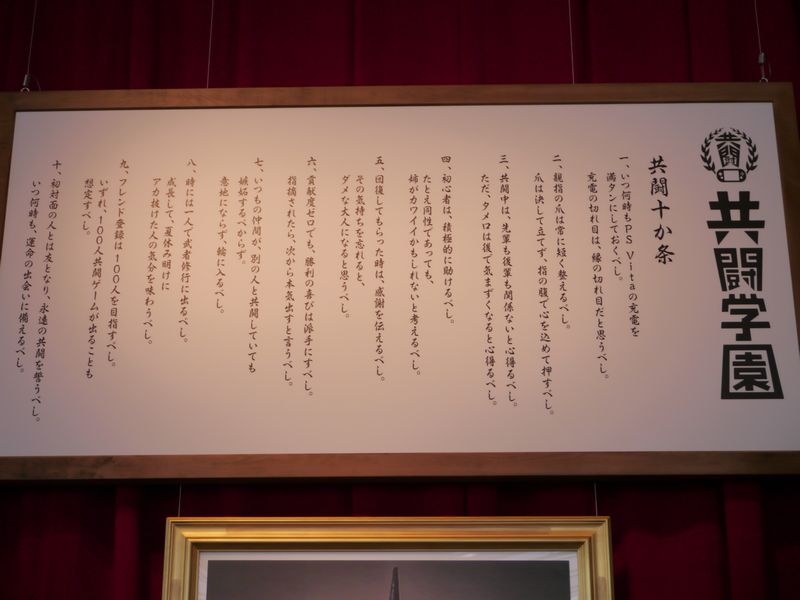 共闘
共闘学園
共闘十か条
一、いつ何時もPS Vitaの充電を
満タンにしておくべし。
充電の切れ目は、縁の切れ目だと思うべし。
二、親指の爪は常に短く整えるべし。
爪は決して立てず、指の腹で心を込めて押すべし。
三、共闘中は、先輩も後輩も関係ないと心得るべし。
ただ、タメ口は後で気まずくなると心得るべし。
四、初心者は、積極的に助けるべし。
たとえ同性であっても、
姉がカワイイかもしれないと考えるべし。
五、回復してもらった時は、感謝を伝えるべし。
その気持ちを忘れると、
ダメな大人になると思うべし。
六、貢献度ゼロでも、勝利の喜びは派手にすべし。
指摘されたら、次から本気出すと言うべし。
七、いつもの仲間が、別の人と共闘していても
嫉妬するべからず。
意地にならず、輪に入るべし。
八、時には一人で武者修行に出るべし。
成長して、夏休み明けに
アカ抜けた人の気分を味わうべし。
九、フレンド登録は100人を目指すべし。
いずれ、100人共闘ゲームが出ることも
想定すべし。
十、初対面の人とは友となり、永遠の共闘を誓うべし。
いつ何時も、運命の出会いに備えるべし。